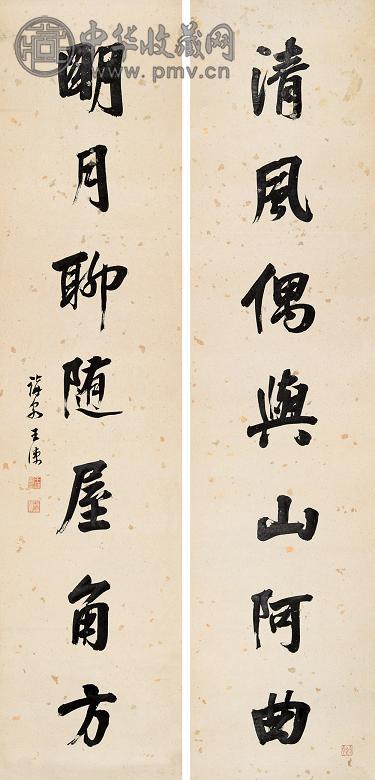 清風偶與山阿曲
明月聊随屋角方
王陳
中华收藏网
www.pmv.cn